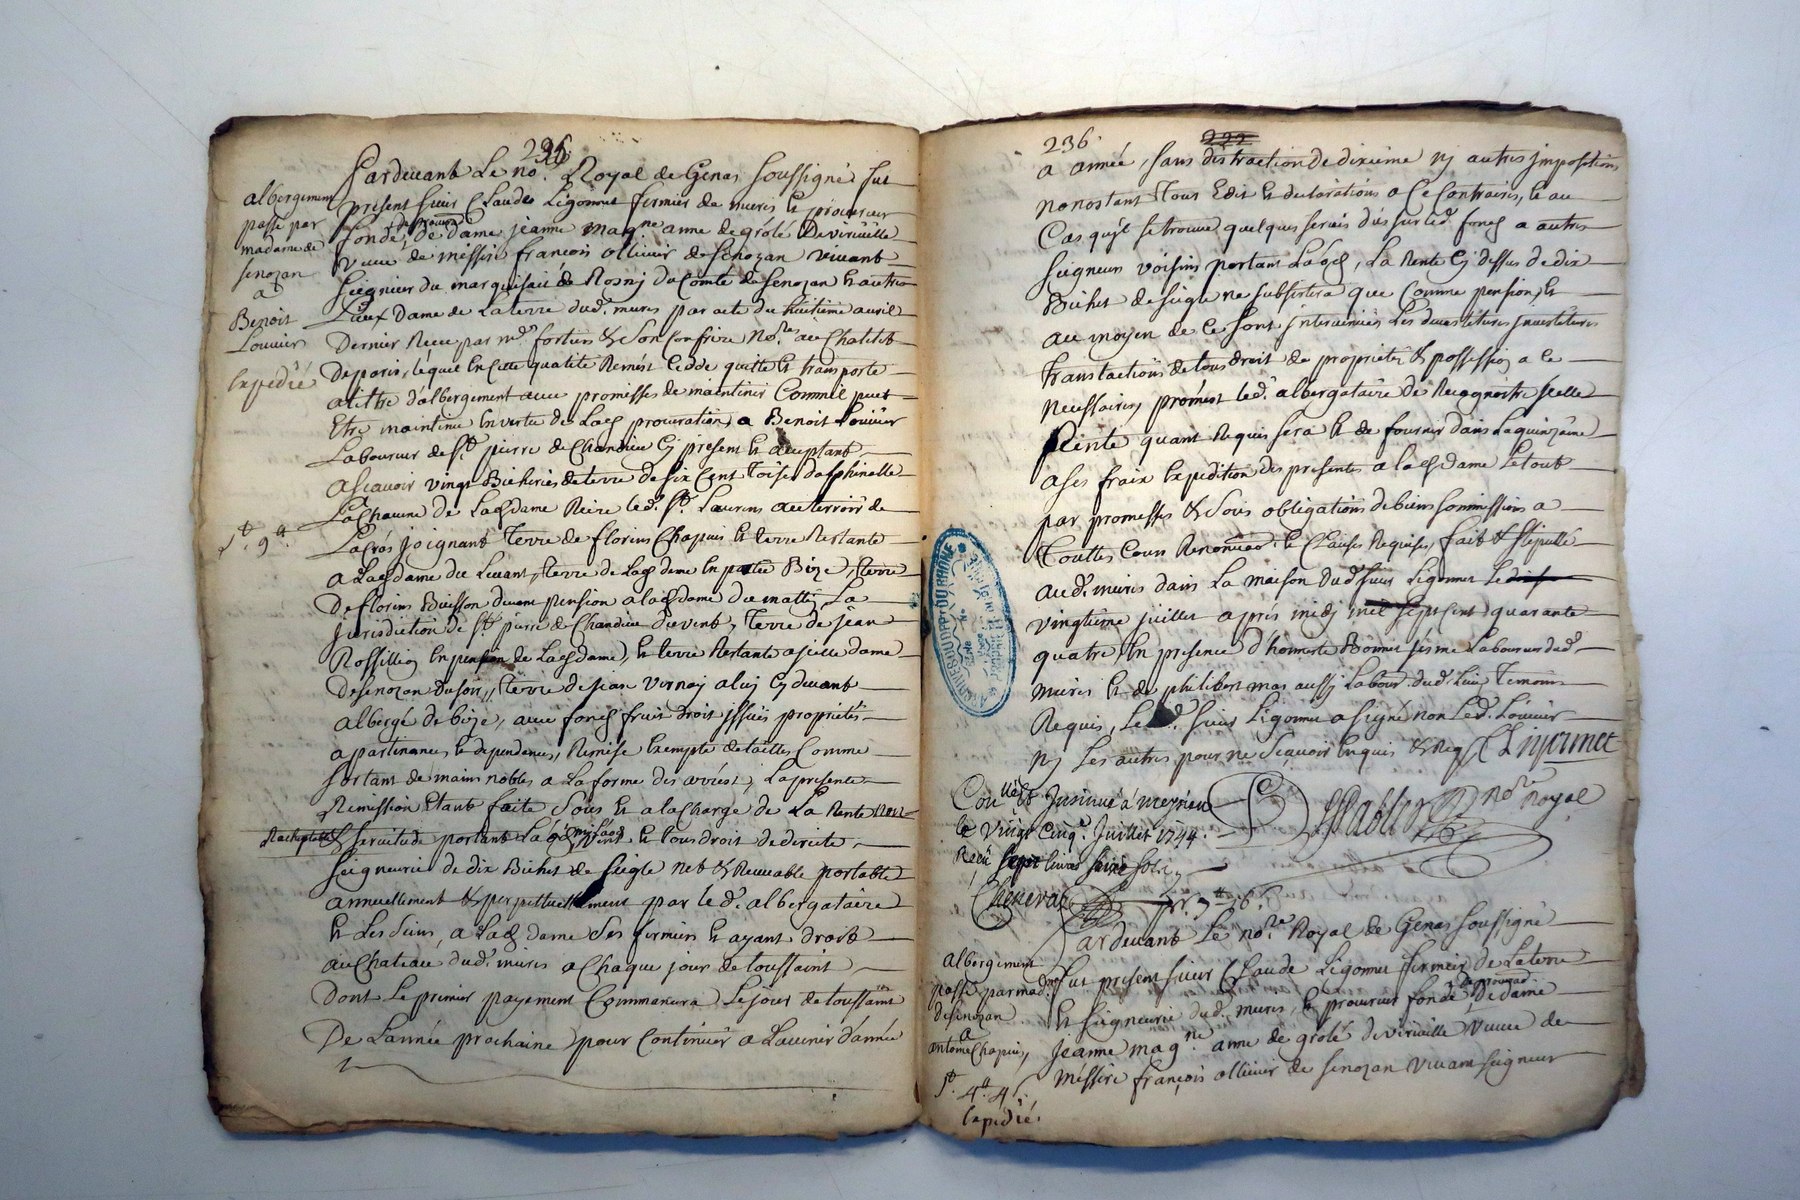 236
albergement
passé par
madame de
senozan
a
Benoit
Louuier
Expédié
Pardeuant Le no.re Royal de Genas soussigné fut
present sieur Claude Ligonnet fermier de mures et procureur
fondé, de dame jeanne magne anne de grolé De viriuille
veuue de messire françois olliuier de senozan viuant
seigneur du marquisat de Rosny du Comté de senozan et autres
Lieux Dame de La terre dud. mures par acte du huitieme auril
Dernier Receu par m.e fortier & son Confrere No.res au Chatelet
De paris, lequel En Cette qualité Remet Cedde quitte et transporte
a titre d'albergement auec promesses de maintenir Comme il peut
Etre maintenu En vertu de Lad. procuration a Benoit Louuier
Laboureur de S.t pierre de Chandieu Cy present et acceptant
a scauoir vingt Bicherées de terre de six Cent Toises delphinalle
La Chacune de Lad. dame Riere led. S.t Laurens au terroir de
s.t 9.tt
joignant Terre de florins Chapuis et terre Restante
a Lad. dame du Leuant, terre de Lad. dame en partie Bize, terre
De florins Buisson deuant pension a lad. dame du matin La
jurisdiction de S.t pierre de Chandieu du vent, Terre de jean
Rossillion En pension de Lad. dame, et terre Restante a jcelle dame
De senozan du soir, terre de jean Vernay a luy Cy deuant
albergé de bize, auec fonds fruits Droit jssues proprietés
apartenances et dependances, Remise Exempte de tailles Comme
sortant de mains nobles a La forme des arrest; La presente
Remission Etant faite sous et a la Charge de La Rente Non
Rachetable & seruitude portant Lods, my Lods, Vent et tous droit de directe
seigneurie de dix Bichet de seigle net & Receuable portable
annuellement & perpetuellement par led. albergataire
et Les siens, a Lad. dame ses fermiers et ayant droit
au Chateau dud. mures a Chaque jour de toussaint
Dont Le premier payement Commancera Le jour de toussaint
De Lannée prochaine pour Continuer a Lauenir d'année
236
a année, sans distraction de dixieme ny autres jmpositions
nonostant Tous Edit et declarations a Ce Contraires, et au
Cas qu'jl se trouue quelques seruis dus sur led. fonds a autres
seigneurs voisins portant Laods, La Rente Cy dessus de dix
Bichet de seigle ne subsistera que Comme pension, et
au moyen de Ce sont jnteruenues Les deuestitures jnuestitures
translations de tous droit de proprieté & possession a Ce
necessaires, promet led. albergataire de Recognoitre jcelle
Rente quant Requis sera et de fournir dans La quinzaine
a ses fraix Expedition des presentes a lad. dame Le tout
par promesses & sous obligations de biens soumissions a
Touttes Cours Renonciaon. et Clauses Requises, fait & stipullé
aud. mures dans La maison dud. sieur Ligonnet Le
vingtieme juillet apres midy mil sept cent quarante
quatre En presence d'honneste Laboureur dud.
mures et de philibert mas aussy Labour. dud. Lieu Temoins
Requis, Led. sieur Ligonnet a signé non Led. Louuier
ny Les autres pour ne sçauoir Enquis & Req. C Ligonnet
Con.llé & Jnsinué a meyzieu
le Vingt Cinq.e Juillet 1744.
Reçu sept liures seize sols
Cheneval
no.re Royal
albergement
passé par mad.me
de senozan
a
antoine Chapuis,
s.t 4.tt 4 s.
Expedié.
Pardeuant Le no.re Royal de Genas soussigné
fut present sieur Claude Ligonnet fermier de La terre
et seigneurie dud. mures, et procureur fondé De dame
Jeanne mag.ne anne de grolé de viriuille veuue de
messire françois olliuier de senozan viuant seigneur
ARCHIVES DU DEPT DU RHONE